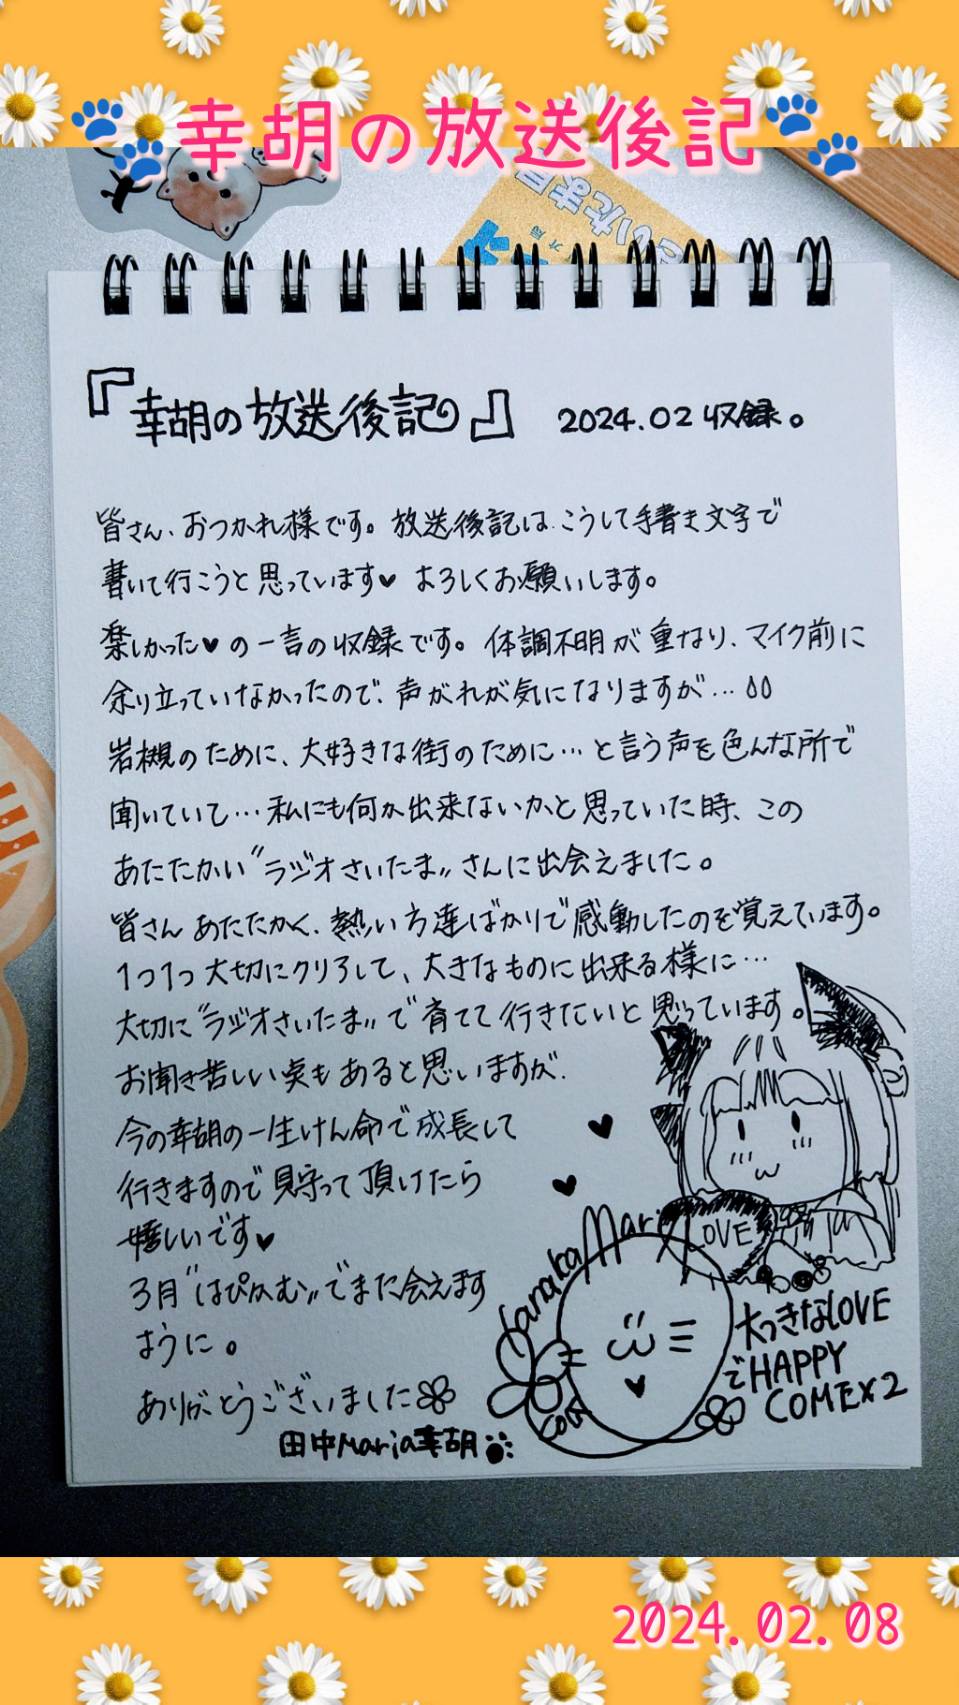 幸胡の放送後記
『幸胡の放送後記』 2024.02 収録。
皆さん、おつかれ様です。放送後記は、こうして手書き文字で
書いて行こうと思っています♥ よろしくお願いします。
楽しかった♥の一言の収録です。体調不明が重なり、マイク前に
余り立っていなかったので、声がれが気になりますが…
岩槻のために、大好きな街のために…と言う声を色んな所で
聞いていて…私にも何か出来ないかと思っていた時、この
あたたかい"ラジオさいたま"さんに出会えました。
皆さんあたたかく、熱い方達ばかりで感動したのを覚えています。
1つ1つ大切にクリアして、大きなものに出来る様に…
大切に"ラジオさいたま"で育てて行きたいと思っています。
お聞き苦しい点もあると思いますが、
今の幸胡の一生けん命で成長して
行きますので見守って頂けたら
嬉しいです♥
3月"はぴかむ"でまた会えます
ように。
ありがとうございました
田中Maria幸胡
LOVE
Tanaka Maria
大っきなLOVE
でHAPPY
COME×2
2024.02.08